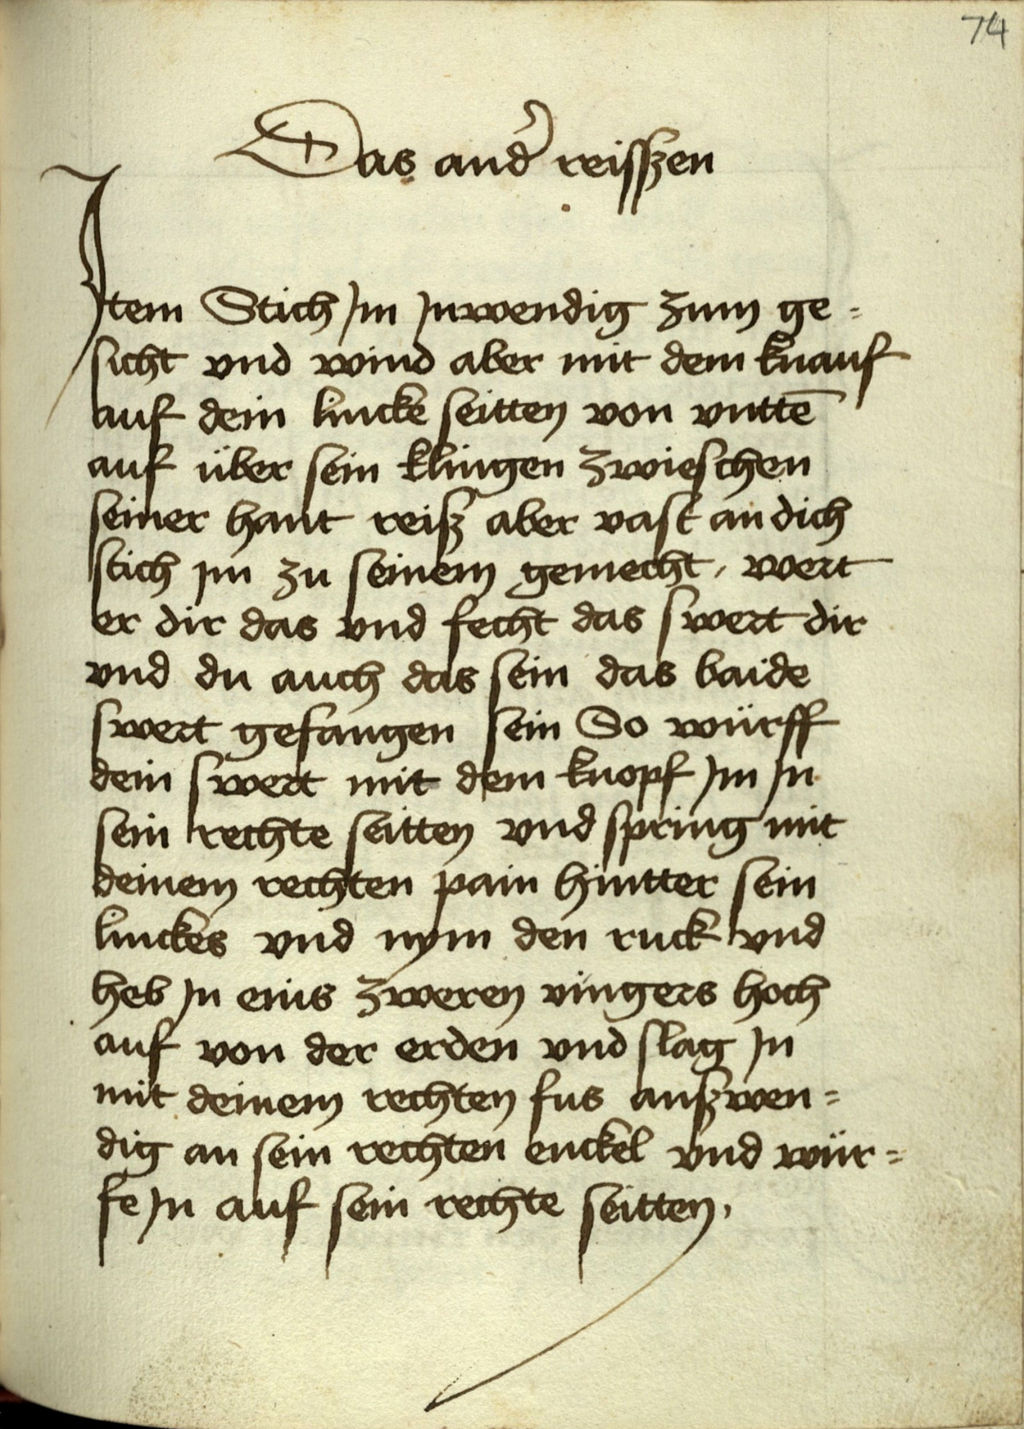 74
Das and' reisszen
Item Stich Jm Jnwendig zum ge=
sicht vnd wind aber mit dem knauf
auf dein lincke seitten von vnttē
auf über sein klingen zwieschen
seiner hant reisz aber vast an dich
stich jm zu seinem gemecht, wert
er dir das vnd fecht das swert dir
vnd du auch das sein das baide
swert gefangen sein So würff
dein swert mit dem knopf Jm Jn
sein rechte seitten vnd spring mit
deinem rechten pain hintter sein
linckes vnd nym den ruck vnd
heb Jn eins zweren vingers hoch
auf von der erden vnd slag Jn
mit deinem rechten fus auszwen=
dig an sein rechten enckel vnd wür=
fe Jn auf sein rechte seitten,